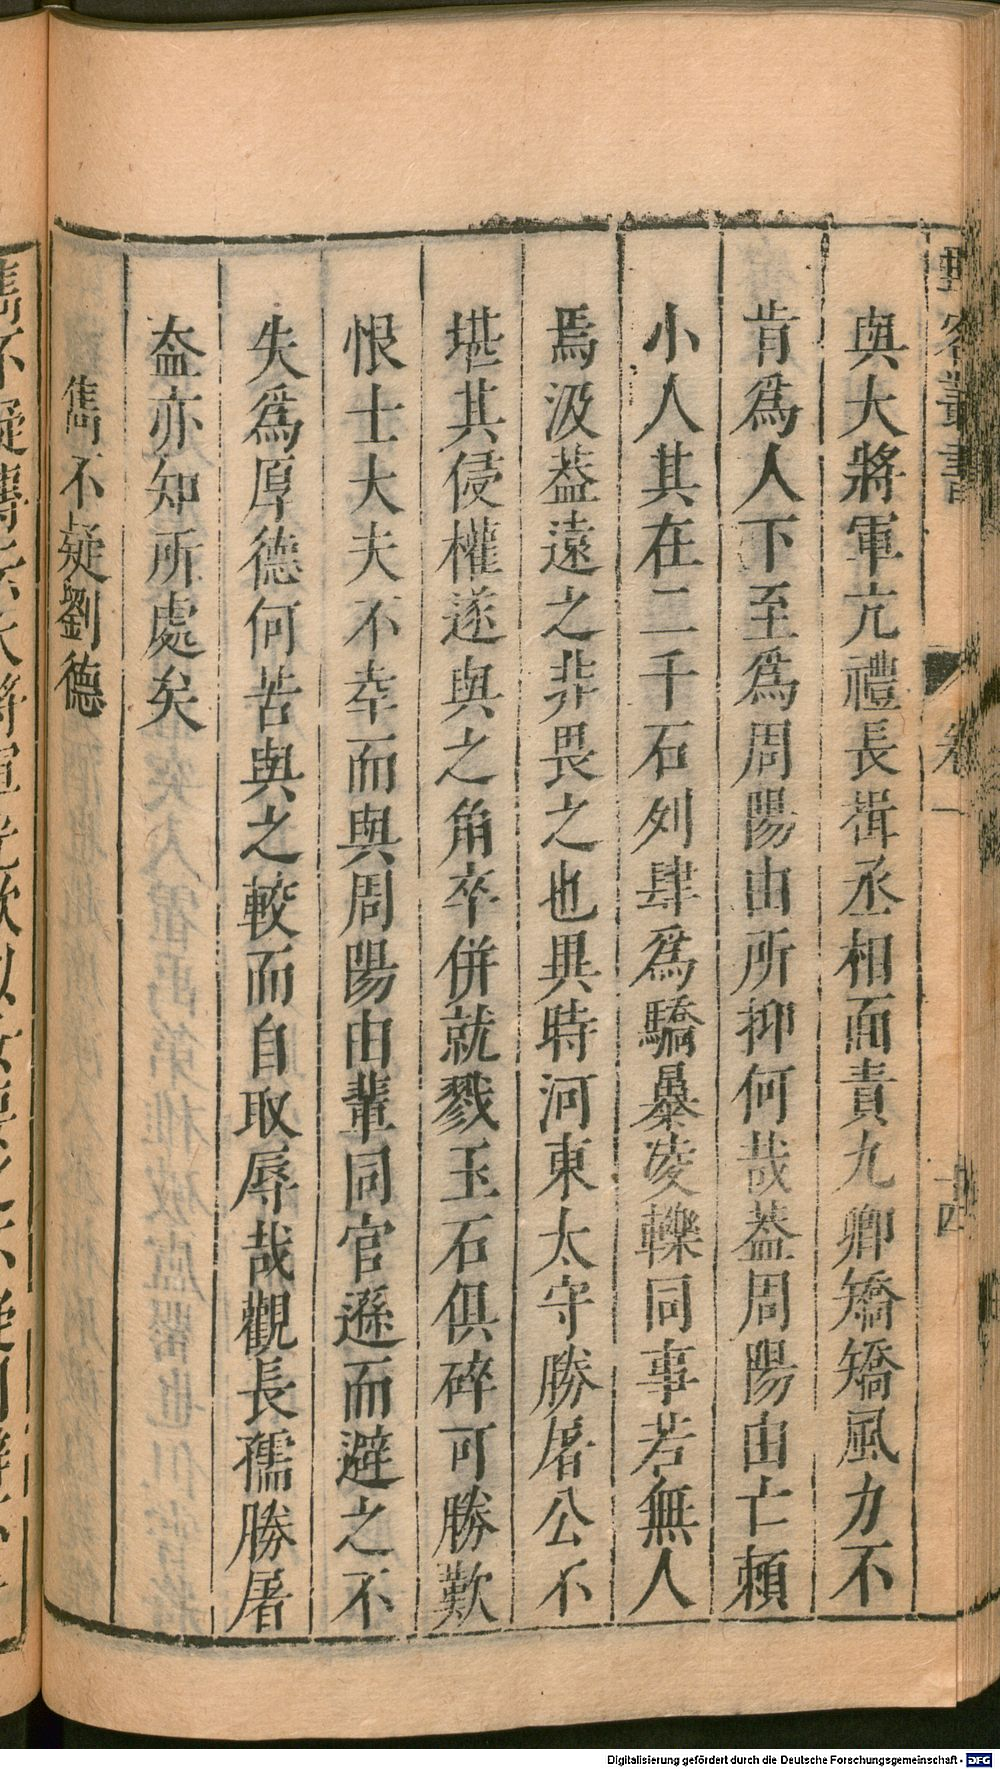 野客叢書
卷一
十四
與大將軍亢禮長揖丞相面責九卿矯矯風力不
肯爲人下至爲周陽由所抑何哉蓋周陽由亡賴
小人其在二千石列肆爲驕暴凌轢同事若無人
焉汲蓋遠之非畏之也異時河東太守勝屠公不
堪其侵權遂與之角卒併就戮玉石俱碎可勝歎
恨士大夫不幸而與周陽由輩同官遜而避之不
失爲厚德何苦與之較而自取辱哉觀長孺勝屠
盍亦知所處矣
雋不疑劉德
Digitalisierung gefördert durch die Deutsche Forschungsgemeinschaft - DFG